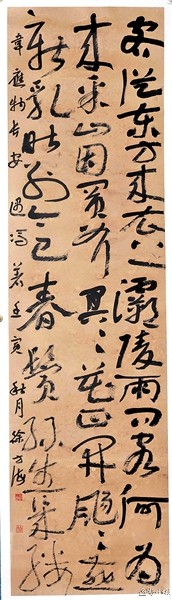 客从东方来衣上灞陵雨问客何为
来采山因買斧冥〻花正開飏〻燕
新乳昨别今已春鬓絲生几缕
韋應物长安遇冯著壬寅秋月徐